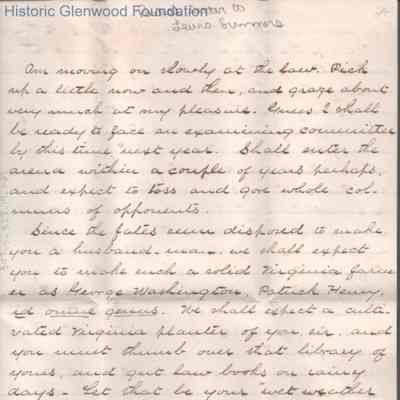 Historic Glenwood Foundation
letter to
Lewis Summers
Am moving on slowly at the law. Pick
up a little now and then, and graze about
very much at my pleasure. Guess I shall
be ready to face an examining committee
by this time next year. Shall enter the
arena within a couple of years perhaps,
and expect to toss and gore whole col-
umns of opponents.
Since the fates seem disposed to make
you a husband-man, we shall expect
you to make such a solid Virginia farm-
er as George Washington, Patrick Henry,
ed omne genus. We shall expect a culti-
vated Virginia planter of you, sir, and
you must thumb over that library of
yours, and gut law books on rainy
days - Let that be your "wet weather